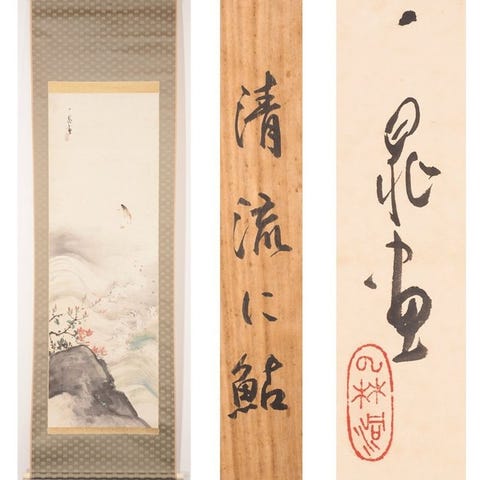 清流に鮎
一晁画